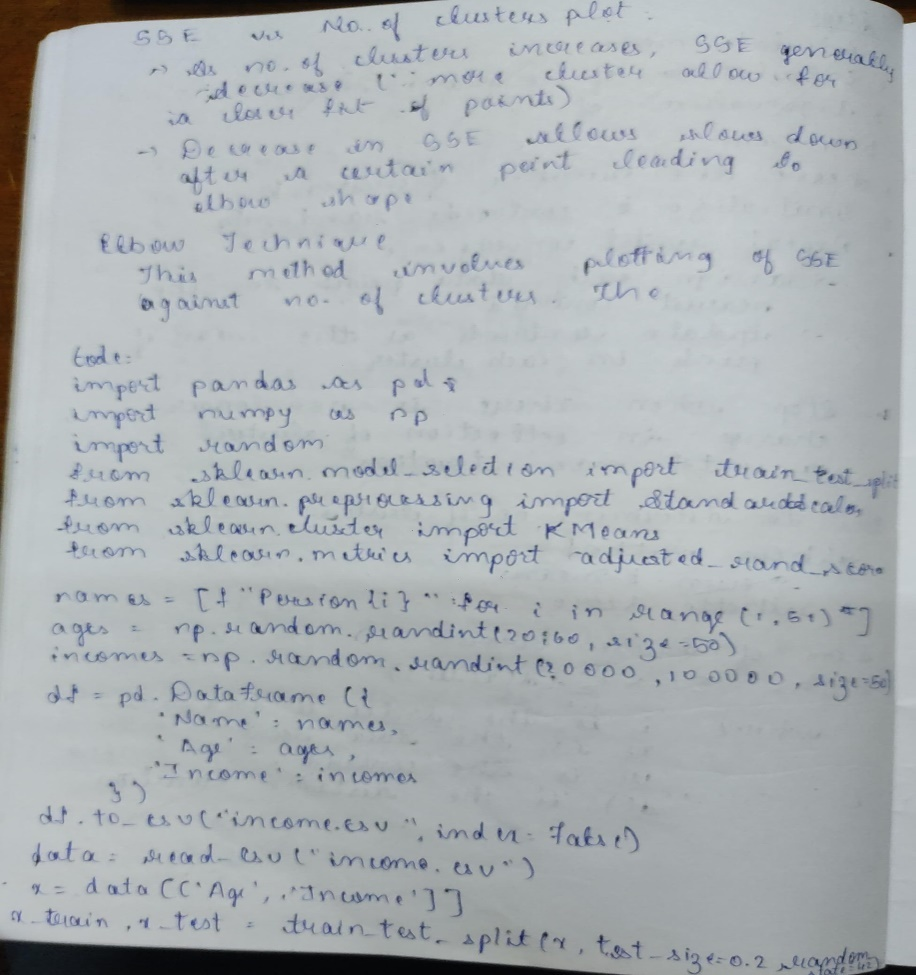 SSE vs No. of clusters plot.
→ As no. of clusters increases, SSE generally
decrease (∵ more cluster allow for
a closer fit of points)
→ Decrease in SSE allows slows down
after a certain point leading to
elbow shape
Elbow Technique
This method involves plotting of SSE
against no. of clusters. The
Code:
import pandas as pd
import numpy as np
import random
from sklearn.model_selection import train_test_split
from sklearn.preprocessing import StandardScaler
from sklearn.cluster import KMeans
from sklearn.metrics import adjusted_rand_score
names = [f "Person{i}" for i in range (1,51)]
ages = np.random.randint(20,60, size=50)
incomes = np.random.randint(20000, 100000, size=50)
df = pd.DataFrame ({
'Name': names,
'Age': ages,
'Income': incomes
})
df.to_csv("income.csv", index=False)
data = read_csv("income.csv")
x = data [['Age', 'Income']]
x_train, x_test = train_test_split(x, test_size=0.2, random